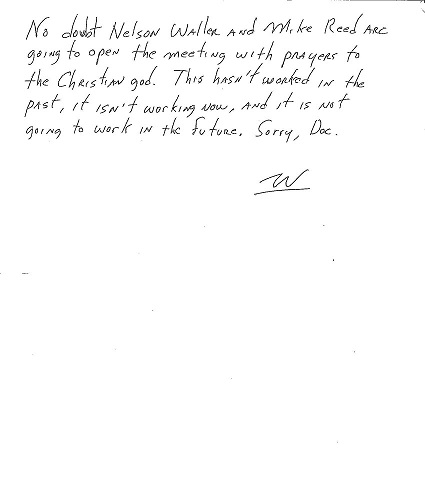 No doubt Nelson Waller and Mike Reed are
going to open the meeting with prayers to
the Christian god. This hasn't worked in the
past, it isn't working now, and it is not
going to work in the future. Sorry, Doc.
W